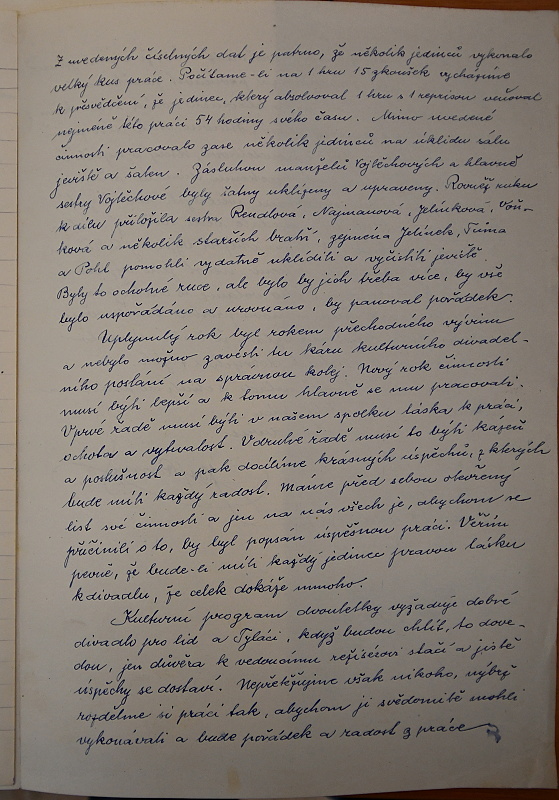 Z uvedených číselných dat je patrno, že několik jedinců vykonalo
velký kus práce. Počítáme-li na 1 hru 15 zkoušek vycházíme
k přesvědčení, že jedinec, který absolvoval 1 hru s 1 reprisou věnoval
nejméně této práci 54 hodiny svého času. Mimo uvedené
činnosti pracovalo zase několik jedinců na úklidu sálu
jeviště a šaten. Zásluhou manželů Vojtěchových a hlavně
sestry Vojtěchové byly šatny uklizeny a upraveny. Rovněž ruku
k dílu přiložila sestra Rendlová, Najmanová, Jelínková, Voš-
ková a několik starších bratří, zejména Jelínek, Tůma
a Pohl pomohli vydatně uklidili a vyčistili jeviště.
Byly to ochotné ruce, ale bylo by jich třeba více, by vše
bylo uspořádáno a urovnáno, by panoval pořádek.
Uplynulý rok byl rokem přechodného vývinu
a nebylo možno zavésti tu káru kulturního divadel-
ního poslání na správnou kolej. Nový rok činnosti
musí býti lepší a k tomu hlavně se mu pracovati.
V prvé řadě musí býti v našem spolku láska k práci,
ochota a vytrvalost. V druhé řadě musí to býti kázeň
a poslušnost a pak docílíme krásných úspěchů, z kterých
bude míti každý radost. Máme před sebou otevřený
list své činnosti a jen na nás všech je, abychom se
přičinili o to, by byl popsán úspěšnou prací. Věřím
pevně, že bude-li míti každý jedinec pravou lásku
k divadlu, že celek dokáže mnoho.
Kulturní program dvouletky vyžaduje dobré
divadlo pro lid a Tyláci, když budou chtít, to dove-
dou, jen důvěra k vedoucímu režisérovi stačí a jistě
úspěchy se dostaví. Nepřetěžujme však nikoho, nýbrž
rozdělme si práci tak, abychom ji svědomitě mohli
vykonávati a bude pořádek a radost z práce